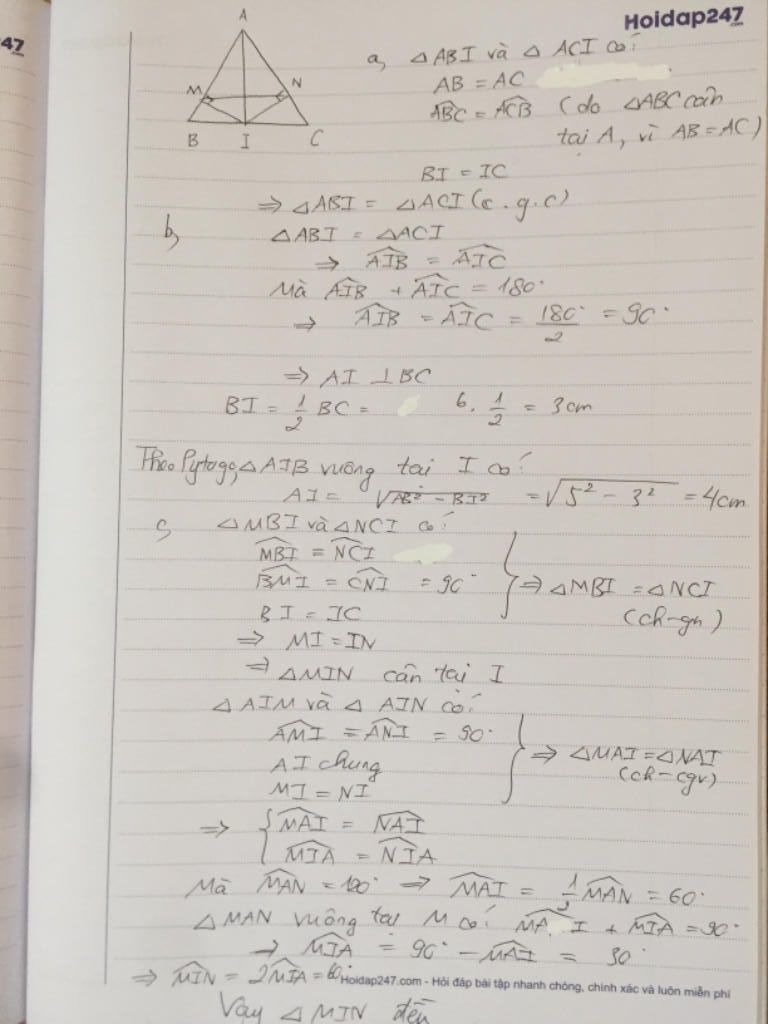 47
Hoidap247
A
M
N
B
I
C
a, △ABI và △ACI có:
AB = AC
ABC^ = ACB^ (do △ABC cân
tại A, vì AB = AC)
BI = IC
⇒ △ABI = △ACI (c.g.c)
b,
△ABI = △ACI
⇒ AIB^ = AIC^
Mà AIB^ + AIC^ = 180°
⇒ AIB^ = AIC^ = 180°/2 = 90°
⇒ AI ⊥ BC
BI = 1/2 BC = 6. 1/2 = 3cm
Theo Pytago, △AIB vuông tại I có:
AI = √(AB² - BI²) = √(5² - 3²) = 4cm
c, △MBI và △NCI có:
MBI^ = NCI^
BMI^ = CNI^ = 90°
⇒ △MBI = △NCI
BI = IC
(ch-gn)
⇒ MI = IN
⇒ △MIN cân tại I
△AIM và △AIN có:
AMI^ = ANI^ = 90°
AI chung
⇒ △MAI = △NAI
(ch-cgv)
MI = NI
⇒ { MAI^ = NAI^
MIA^ = NIA^
Mà MAN^ = 120° ⇒ MAI^ = 1/2 MAN^ = 60°
△MAN vuông tại M có: MAI^ + MIA^ = 90°
⇒ MIA^ = 90° - MAI^ = 30°
⇒ MIN^ = 2MIA^ = 60°
Hoidap247.com - Hỏi đáp bài tập nhanh chóng, chính xác và luôn miễn phí
Vậy △MIN đều